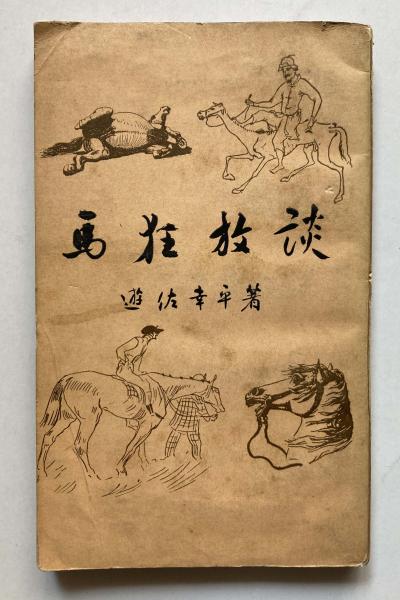 馬狂放談
遊佐幸平著